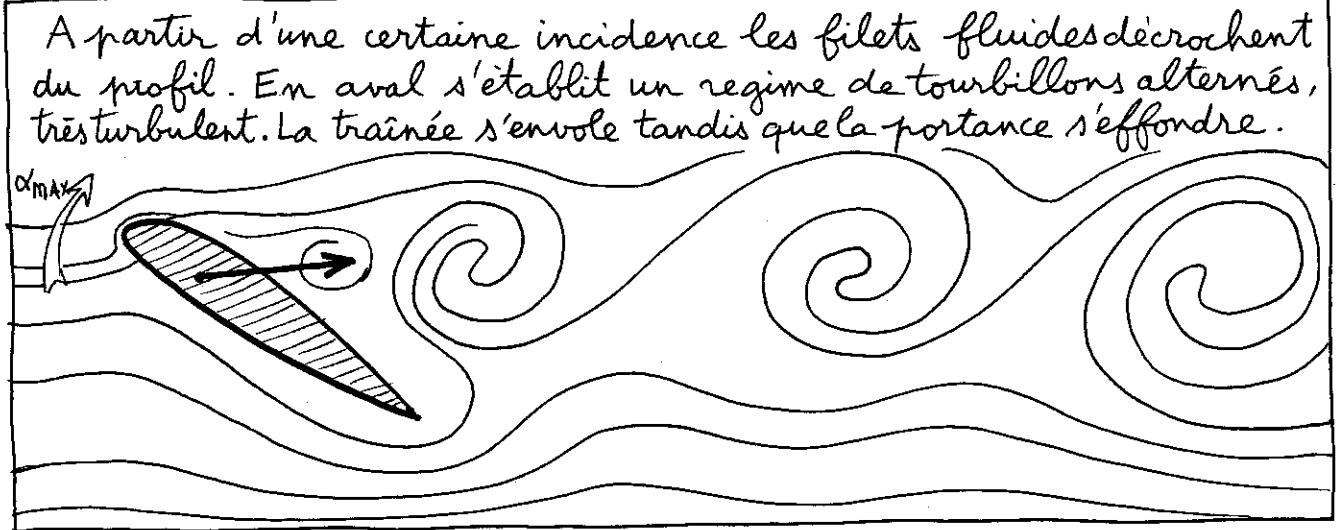 A partir d'une certaine incidence les filets fluides décrochent
du profil. En aval s'établit un regime de tourbillons alternés,
très turbulent. La traînée s'envole tandis que la portance s'effondre.
αMAX